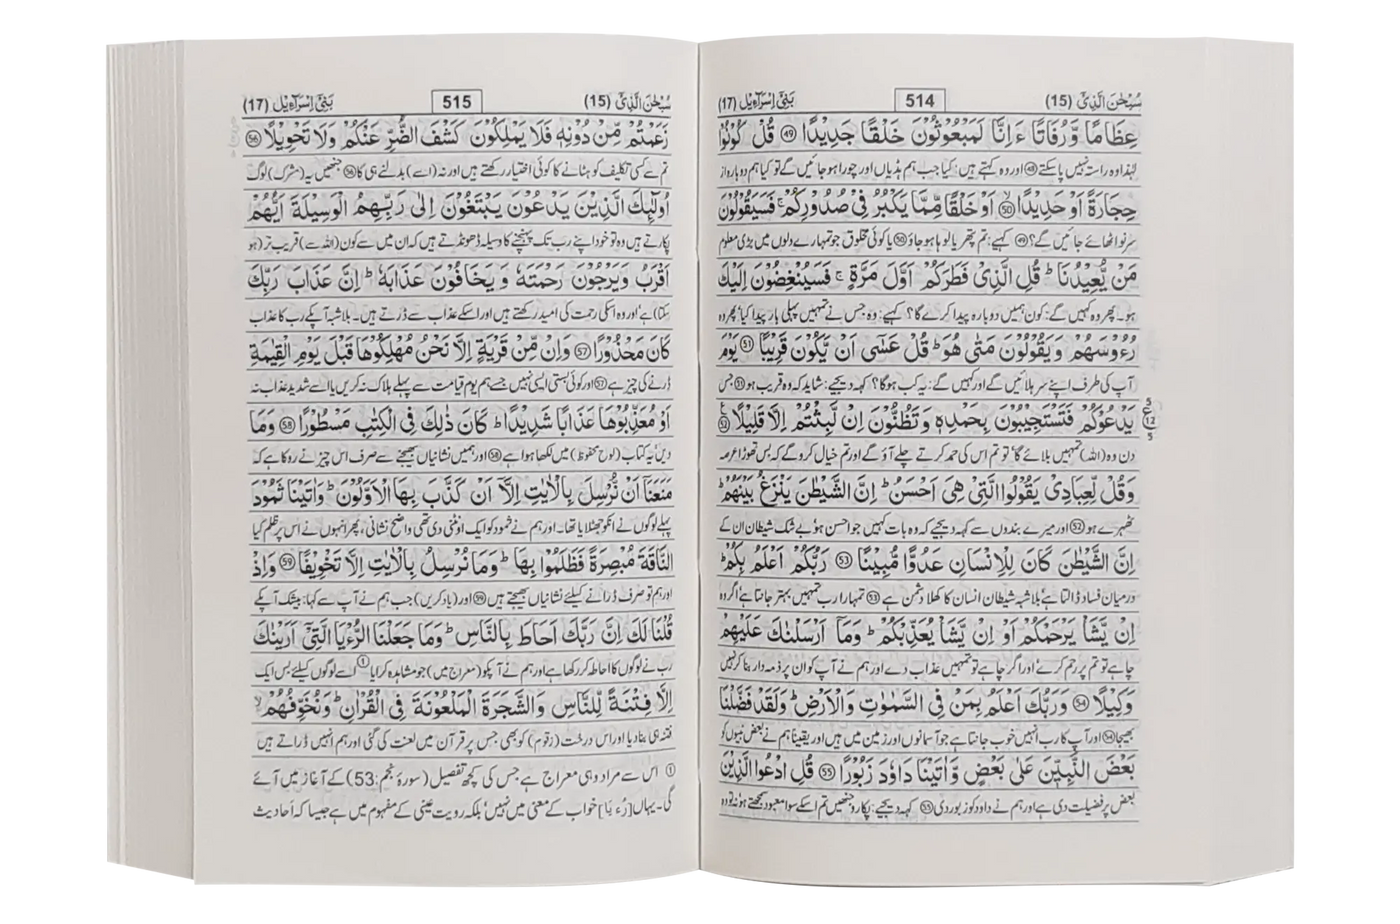 سُبْحٰنَ الَّذِيْٓ (15)
514
بَنِيْٓ اِسْرَآءِيْل (17)
عِظَامًا وَّرُفَاتًا ءَاِنَّا لَمَبْعُوْثُوْنَ خَلْقًا جَدِيْدًا ﴿49﴾ قُلْ كُوْنُوْا
لہٰذا وہ راستہ نہیں پا سکتے ﴿48﴾ اور وہ کہتے ہیں: کیا جب ہم ہڈیاں اور چورا ہو جائیں گے تو کیا ہم دوبارہ از
حِجَارَةً اَوْ حَدِيْدًا ﴿50﴾ اَوْ خَلْقًا مِّمَّا يَكْبُرُ فِيْ صُدُوْرِكُمْ ۚ فَسَيَقُوْلُوْنَ
سرنو اٹھائے جائیں گے؟ ﴿49﴾ کہیے: تم پتھر یا لوہا ہو جاؤ ﴿50﴾ یا کوئی مخلوق جو تمہارے دلوں میں بڑی معلوم
مَنْ يُّعِيْدُنَا ؕ قُلِ الَّذِيْ فَطَرَكُمْ اَوَّلَ مَرَّةٍ ۚ فَسَيُنْغِضُوْنَ اِلَيْكَ
ہو۔ پھر وہ کہیں گے: کون ہمیں دوبارہ پیدا کرے گا؟ کہیے: وہ جس نے تمہیں پہلی بار پیدا کیا، پھر وہ
رُءُوْسَهُمْ وَيَقُوْلُوْنَ مَتٰى هُوَ ؕ قُلْ عَسٰٓى اَنْ يَّكُوْنَ قَرِيْبًا ﴿51﴾ يَوْمَ
آپ کی طرف اپنے سر ہلائیں گے اور کہیں گے: یہ کب ہوگا؟ کہہ دیجیے: شاید کہ وہ قریب ہو ﴿51﴾ جس
يَدْعُوْكُمْ فَتَسْتَجِيْبُوْنَ بِحَمْدِهٖ وَتَظُنُّوْنَ اِنْ لَّبِثْتُمْ اِلَّا قَلِيْلًا ﴿52﴾
5 ع 12 5
دن وہ (اللہ) تمہیں بلائے گا، تو تم اس کی حمد کرتے چلے آؤ گے اور تم خیال کرو گے کہ بس تھوڑا عرصہ
وَقُلْ لِّعِبَادِيْ يَقُوْلُوا الَّتِيْ هِيَ اَحْسَنُ ؕ اِنَّ الشَّيْطٰنَ يَنْزَغُ بَيْنَهُمْ ؕ
ٹھہرے ہو ﴿52﴾ اور میرے بندوں سے کہہ دیجیے کہ وہ بات کہیں جو احسن ہو، بے شک شیطان ان کے
اِنَّ الشَّيْطٰنَ كَانَ لِلْاِنْسَانِ عَدُوًّا مُّبِيْنًا ﴿53﴾ رَبُّكُمْ اَعْلَمُ بِكُمْ ؕ
درمیان فساد ڈالتا ہے، بلاشبہ شیطان انسان کا کھلا دشمن ہے ﴿53﴾ تمہارا رب تمہیں بہتر جانتا ہے، اگر وہ
اِنْ يَّشَاْ يَرْحَمْكُمْ اَوْ اِنْ يَّشَاْ يُعَذِّبْكُمْ ؕ وَمَآ اَرْسَلْنٰكَ عَلَيْهِمْ
چاہے تو تم پر رحم کرے، اور اگر چاہے تو تمہیں عذاب دے اور ہم نے آپ کو ان پر ذمہ دار بنا کر نہیں
وَكِيْلًا ﴿54﴾ وَرَبُّكَ اَعْلَمُ بِمَنْ فِي السَّمٰوٰتِ وَالْاَرْضِ ؕ وَلَقَدْ فَضَّلْنَا
بھیجا ﴿54﴾ اور آپ کا رب انہیں خوب جانتا ہے جو آسمانوں اور زمین میں ہیں اور یقیناً ہم نے بعض نبیوں کو
بَعْضَ النَّبِيّٖنَ عَلٰى بَعْضٍ وَّاٰتَيْنَا دَاوٗدَ زَبُوْرًا ﴿55﴾ قُلِ ادْعُوا الَّذِيْنَ
بعض پر فضیلت دی ہے اور ہم نے داود کو زبور دی ﴿55﴾ کہہ دیجیے: پکارو جنہیں تم اسکے سوا معبود سمجھتے ہو، تو وہ
سُبْحٰنَ الَّذِيْٓ (15)
515
بَنِيْٓ اِسْرَآءِيْل (17)
زَعَمْتُمْ مِّنْ دُوْنِهٖ فَلَا يَمْلِكُوْنَ كَشْفَ الضُّرِّ عَنْكُمْ وَلَا تَحْوِيْلًا ﴿56﴾
تم سے کسی تکلیف کو ہٹانے کا کوئی اختیار رکھتے ہیں اور نہ (اسے) بدلنے ہی کا ﴿56﴾ جنھیں یہ (مشرک) لوگ
اُولٰٓئِكَ الَّذِيْنَ يَدْعُوْنَ يَبْتَغُوْنَ اِلٰى رَبِّهِمُ الْوَسِيْلَةَ اَيُّهُمْ
پکارتے ہیں وہ تو خود اپنے رب تک پہنچنے کا وسیلہ ڈھونڈتے ہیں کہ ان میں سے کون (اللہ سے) قریب تر (ہو
اَقْرَبُ وَيَرْجُوْنَ رَحْمَتَهٗ وَيَخَافُوْنَ عَذَابَهٗ ؕ اِنَّ عَذَابَ رَبِّكَ
سکتا) ہے، اور وہ اسکی رحمت کی امید رکھتے ہیں اور اسکے عذاب سے ڈرتے ہیں۔ بلاشبہ آپکے رب کا عذاب
كَانَ مَحْذُوْرًا ﴿57﴾ وَاِنْ مِّنْ قَرْيَةٍ اِلَّا نَحْنُ مُهْلِكُوْهَا قَبْلَ يَوْمِ الْقِيٰمَةِ
ڈرنے کی چیز ہے ﴿57﴾ اور کوئی بستی ایسی نہیں جسے ہم یوم قیامت سے پہلے ہلاک نہ کریں یا اسے شدید عذاب نہ
اَوْ مُعَذِّبُوْهَا عَذَابًا شَدِيْدًا ؕ كَانَ ذٰلِكَ فِي الْكِتٰبِ مَسْطُوْرًا ﴿58﴾ وَمَا
دیں، یہ کتاب (لوح محفوظ) میں لکھا ہوا ہے ﴿58﴾ اور ہمیں نشانیاں بھیجنے سے صرف اس چیز نے روکا ہے کہ
مَنَعَنَآ اَنْ نُّرْسِلَ بِالْاٰيٰتِ اِلَّآ اَنْ كَذَّبَ بِهَا الْاَوَّلُوْنَ ؕ وَاٰتَيْنَا ثَمُوْدَ
پہلے لوگوں نے انکو جھٹلایا تھا۔ اور ہم نے ثمود کو ایک اونٹنی دی تھی واضح نشانی، پھر انہوں نے اس پر ظلم کیا
النَّاقَةَ مُبْصِرَةً فَظَلَمُوْا بِهَا ؕ وَمَا نُرْسِلُ بِالْاٰيٰتِ اِلَّا تَخْوِيْفًا ﴿59﴾ وَاِذْ
اور ہم تو صرف ڈرانے کیلئے نشانیاں بھیجتے ہیں ﴿59﴾ اور (یاد کریں) جب ہم نے آپ سے کہا: بیشک آپکے
قُلْنَا لَكَ اِنَّ رَبَّكَ اَحَاطَ بِالنَّاسِ ؕ وَمَا جَعَلْنَا الرُّءْيَا الَّتِيْٓ اَرَيْنٰكَ
رب نے لوگوں کا احاطہ کر رکھا ہے اور ہم نے آپکو (معراج میں) جو مشاہدہ کرایا ① اسے لوگوں کیلئے بس ایک
اِلَّا فِتْنَةً لِّلنَّاسِ وَالشَّجَرَةَ الْمَلْعُوْنَةَ فِي الْقُرْاٰنِ ؕ وَنُخَوِّفُهُمْ ۙ
فتنہ ہی بنا دیا اور اس درخت (زقوم) کو بھی، جس پر قرآن میں لعنت کی گئی اور ہم انہیں ڈراتے ہیں
① اس سے مراد وہی معراج ہے جس کی کچھ تفصیل (سورۂ نجم: 53) کے آغاز میں آئے
گی۔ یہاں [رُءْيَا] خواب کے معنی میں نہیں، بلکہ رویت عینی کے مفہوم میں ہے جیسا کہ احادیث